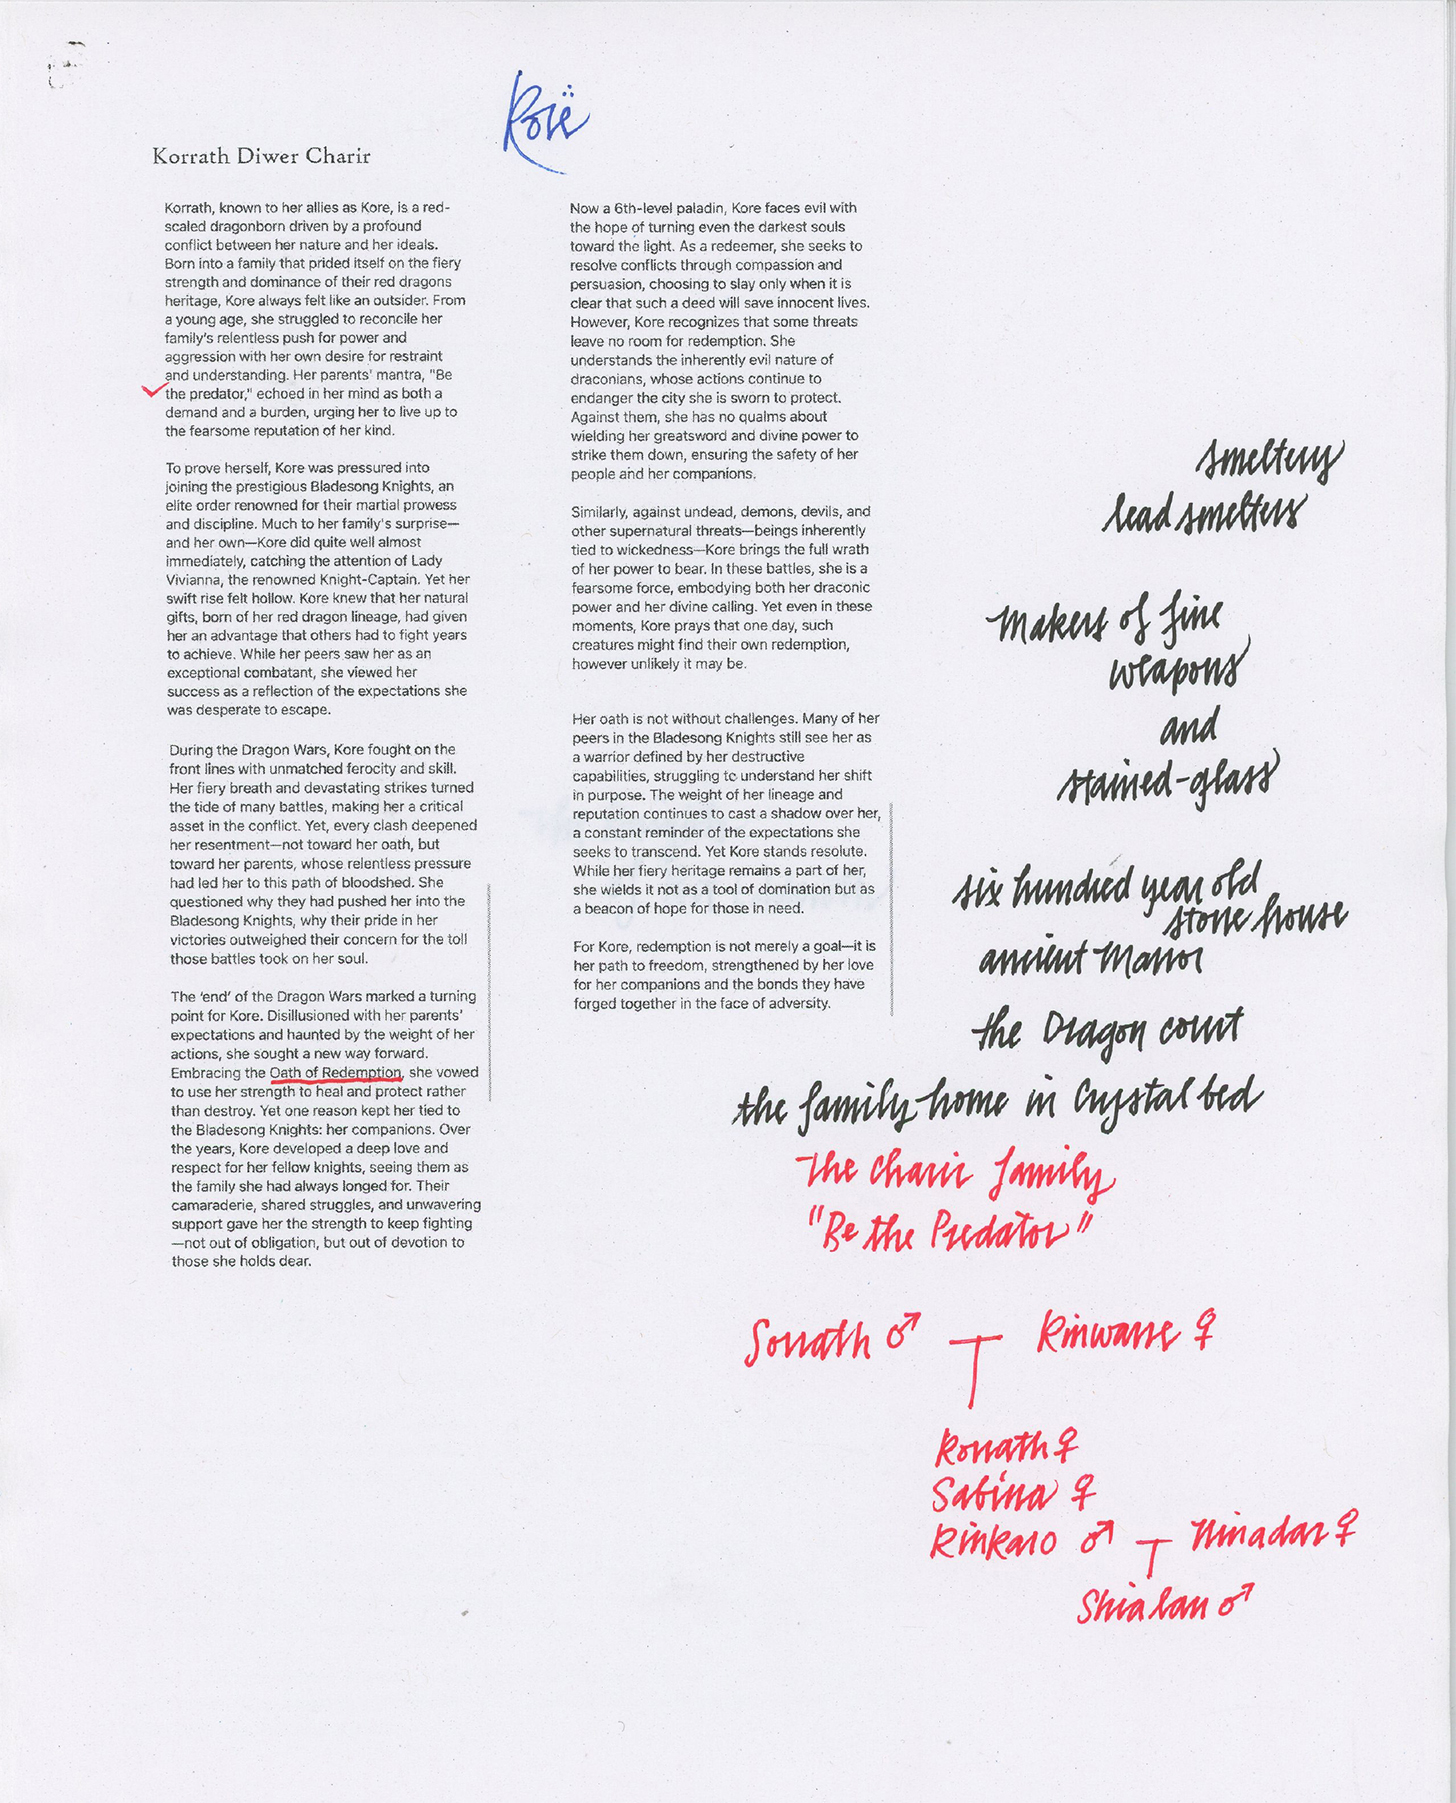 Korë
Korrath Diwer Charir
Korrath, known to her allies as Kore, is a red-
scaled dragonborn driven by a profound
conflict between her nature and her ideals.
Born into a family that prided itself on the fiery
strength and dominance of their red dragons
heritage, Kore always felt like an outsider. From
a young age, she struggled to reconcile her
family's relentless push for power and
aggression with her own desire for restraint
and understanding. Her parents' mantra, "Be
the predator," echoed in her mind as both a
demand and a burden, urging her to live up to
the fearsome reputation of her kind.
To prove herself, Kore was pressured into
joining the prestigious Bladesong Knights, an
elite order renowned for their martial prowess
and discipline. Much to her family's surprise—
and her own—Kore did quite well almost
immediately, catching the attention of Lady
Vivianna, the renowned Knight-Captain. Yet her
swift rise felt hollow. Kore knew that her natural
gifts, born of her red dragon lineage, had given
her an advantage that others had to fight years
to achieve. While her peers saw her as an
exceptional combatant, she viewed her
success as a reflection of the expectations she
was desperate to escape.
During the Dragon Wars, Kore fought on the
front lines with unmatched ferocity and skill.
Her fiery breath and devastating strikes turned
the tide of many battles, making her a critical
asset in the conflict. Yet, every clash deepened
her resentment—not toward her oath, but
toward her parents, whose relentless pressure
had led her to this path of bloodshed. She
questioned why they had pushed her into the
Bladesong Knights, why their pride in her
victories outweighed their concern for the toll
those battles took on her soul.
The ‘end’ of the Dragon Wars marked a turning
point for Kore. Disillusioned with her parents'
expectations and haunted by the weight of her
actions, she sought a new way forward.
Embracing the Oath of Redemption, she vowed
to use her strength to heal and protect rather
than destroy. Yet one reason kept her tied to
the Bladesong Knights: her companions. Over
the years, Kore developed a deep love and
respect for her fellow knights, seeing them as
the family she had always longed for. Their
camaraderie, shared struggles, and unwavering
support gave her the strength to keep fighting
—not out of obligation, but out of devotion to
those she holds dear.
Now a 6th-level paladin, Kore faces evil with
the hope of turning even the darkest souls
toward the light. As a redeemer, she seeks to
resolve conflicts through compassion and
persuasion, choosing to slay only when it is
clear that such a deed will save innocent lives.
However, Kore recognizes that some threats
leave no room for redemption. She
understands the inherently evil nature of
draconians, whose actions continue to
endanger the city she is sworn to protect.
Against them, she has no qualms about
wielding her greatsword and divine power to
strike them down, ensuring the safety of her
people and her companions.
Similarly, against undead, demons, devils, and
other supernatural threats—beings inherently
tied to wickedness—Kore brings the full wrath
of her power to bear. In these battles, she is a
fearsome force, embodying both her draconic
power and her divine calling. Yet even in these
moments, Kore prays that one day, such
creatures might find their own redemption,
however unlikely it may be.
Her oath is not without challenges. Many of her
peers in the Bladesong Knights still see her as
a warrior defined by her destructive
capabilities, struggling to understand her shift
in purpose. The weight of her lineage and
reputation continues to cast a shadow over her,
a constant reminder of the expectations she
seeks to transcend. Yet Kore stands resolute.
While her fiery heritage remains a part of her,
she wields it not as a tool of domination but as
a beacon of hope for those in need.
For Kore, redemption is not merely a goal—it is
her path to freedom, strengthened by her love
for her companions and the bonds they have
forged together in the face of adversity.
smeltery
lead smelters
Makers of fine
weapons
and
stained-glass
six hundred year old
stone house
ancient Manor
the Dragon court
the family home in Crystal bed
The Charir family
"Be the Predator"
Sorrath ♂ Rinwarre ♀
Korrath ♀
Sabina ♀
Rinkaro ♂ Ninadar ♀
Shialan ♂